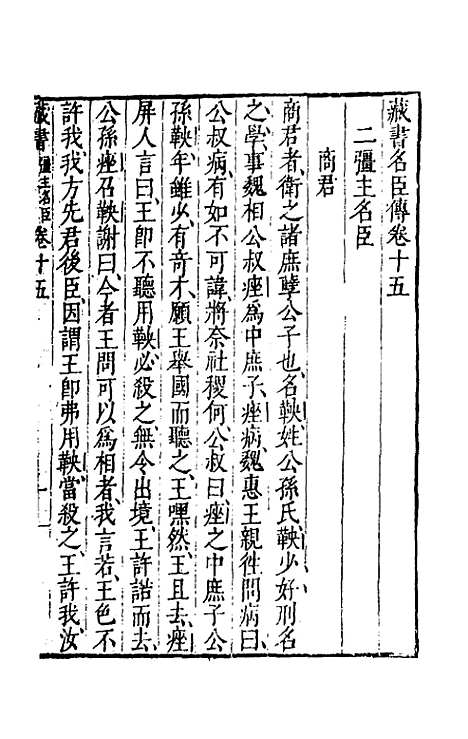 藏書名臣傳卷十五
二彊主名臣
商君
商君者、衛之諸庶孽公子也、名鞅、姓公孫氏、鞅少好刑名
之學、事魏相公叔痤爲中庶子、痤病、魏惠王親徃問病、曰、
公叔病、有如不可諱、將奈社稷何、公叔曰、痤之中庶子公
孫鞅、年雖少、有奇才、願王舉國而聽之、王嘿然、王且去、痤
屏人言曰、王卽不聽用鞅、必殺之、無令出境、王許諾而去、
公孫痤召鞅謝曰、今者王問可以爲相者、我言若、王色不
許我、我方先君後臣、因謂王卽弗用鞅、當殺之、王許我、汝
藏書 彊主名臣 卷十五